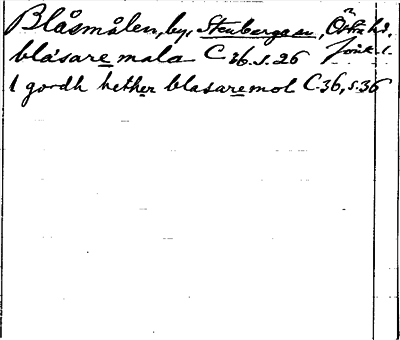 Blåsmålen, by, Stenberga sn, Östra hd,
Jönk. l.
blasare mala C 36 s. 26
1 gordh hether blasaremol C 36, s. 36